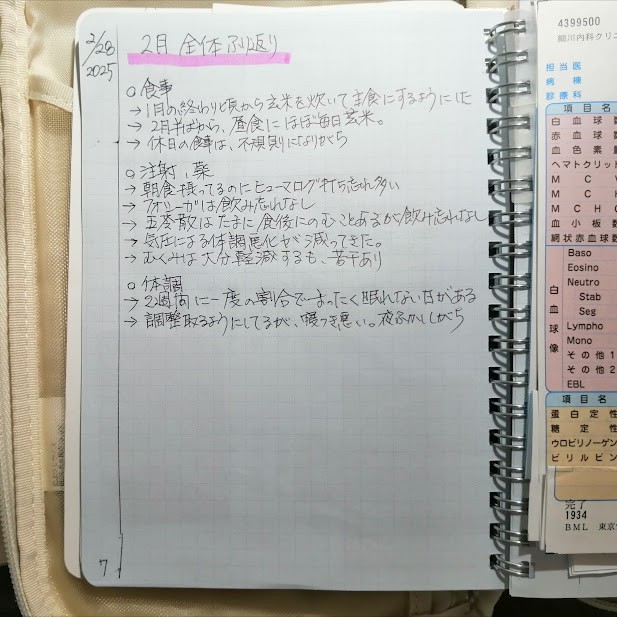 2/28
2025
2月 全体ふり返り
○食事
→ 1月の終わり頃から玄米を炊いて主食にするようにした
→ 2月半ばから、昼食にほぼ毎日玄米。
→ 休日の食事は、不規則になりがち
○注射、薬
→ 朝食摂ってるのにヒューマログ打ち忘れ多い
→ フォシーガは飲み忘れなし
→ 五苓散はたまに食後にのむことあるが飲み忘れなし
→ 気圧による体調悪化が減ってきた。
→ むくみは大分軽減するも、若干あり
○体調
→ 2週間に一度の割合でまったく眠れない日がある
→ 調整取るようにしてるが、寝つき悪い。夜ふかししがち
7
4399500
細川内科クリニ
担当医
病棟
診療科
項目名
白血球数
赤血球数
血色素量
ヘマトクリット
MC
MC
MCHC
血小板数
網状赤血球数
白血球像
Baso
Eosino
Neutro
Stab
Seg
Lympho
Mono
その他1
その他2
EBL
項目名
蛋白定性
糖定性
ウロビリノーゲン
ビリルビン
完了
1934
BML 東京